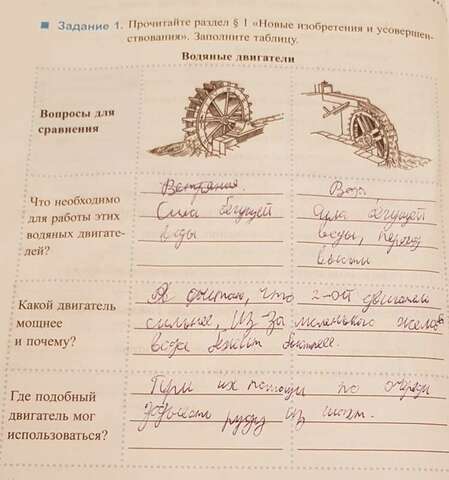 Задание 1. Прочитайте раздел § 1 «Новые изобретения и усовершен-
ствования». Заполните таблицу.
Водяные двигатели
Вопросы для
сравнения
Что необходимо
для работы этих
водяных двигате-
лей?
Сила бегущей
воды
Вода
Сила бегущей
воды, перепад
высоты
Какой двигатель
мощнее
и почему?
Я считаю, что 2-ой двигатель
сильнее, из-за маленького желоба
вода бежит быстрее.
Где подобный
двигатель мог
использоваться?
При их помощи по очереди
руду из шахт.